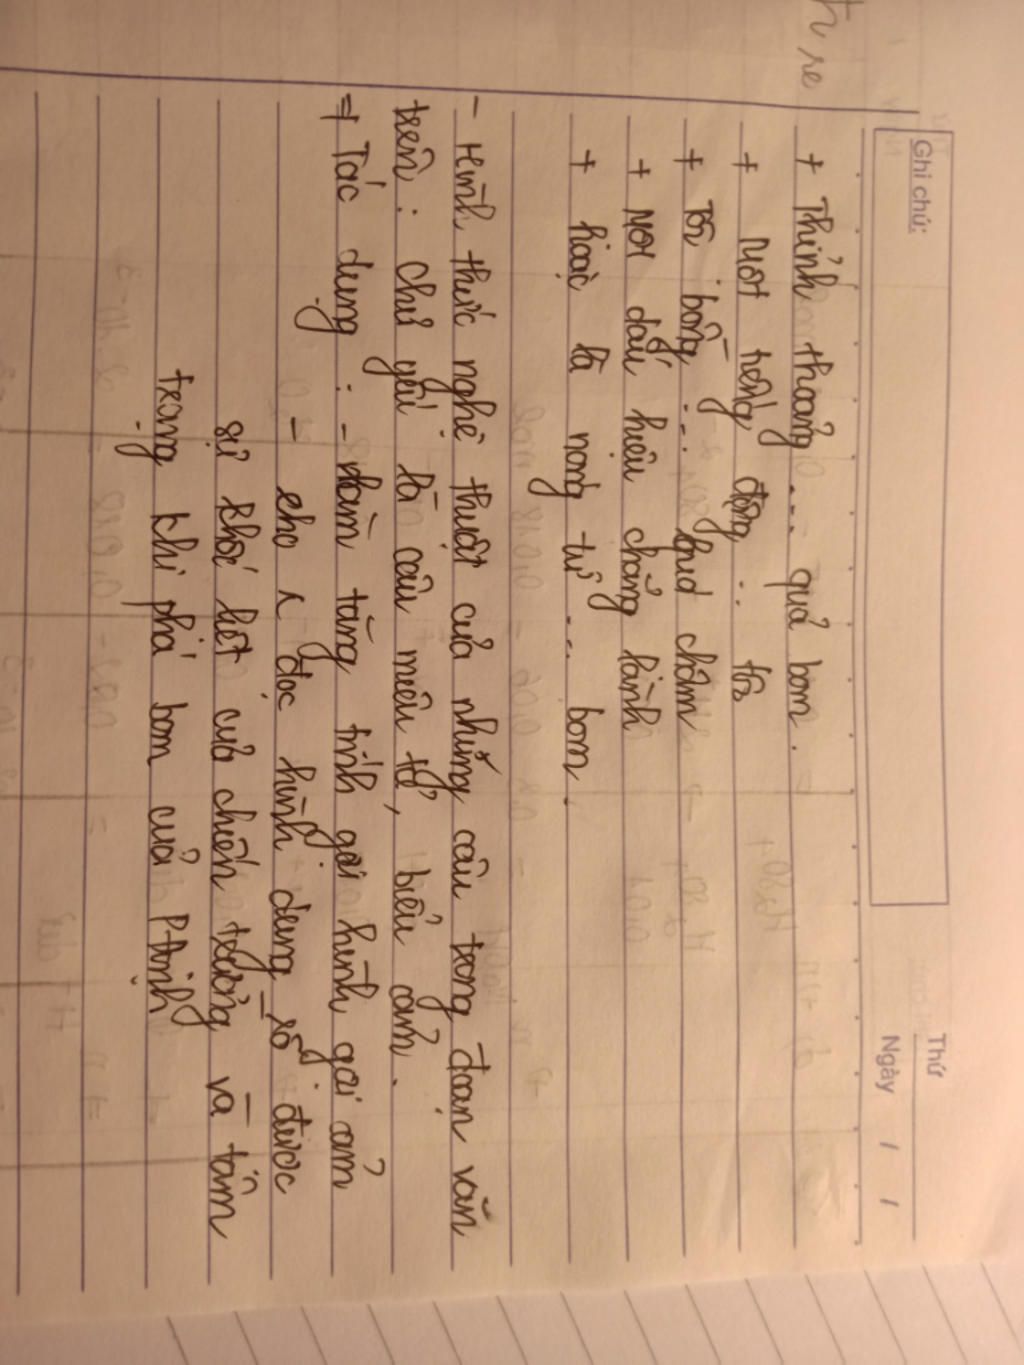 Ghi chú:
Thứ
Ngày / /
+ Thỉnh thoảng ... quả bom.
+ Một tiếng động ... tôi
+ Tôi bỗng ... quá chậm
+ Một dấu hiệu chẳng lành
+ hoặc là nóng từ ... bom.
- Hình thức nghệ thuật của những câu trong đoạn văn
trên: chủ yếu là câu miêu tả, biểu cảm.
=> Tác dụng: - nhằm tăng tính gợi hình gợi cảm
- cho đọc hình dung rõ được
sự khốc liệt của chiến trường và tâm
trạng khi phá bom của P.Định